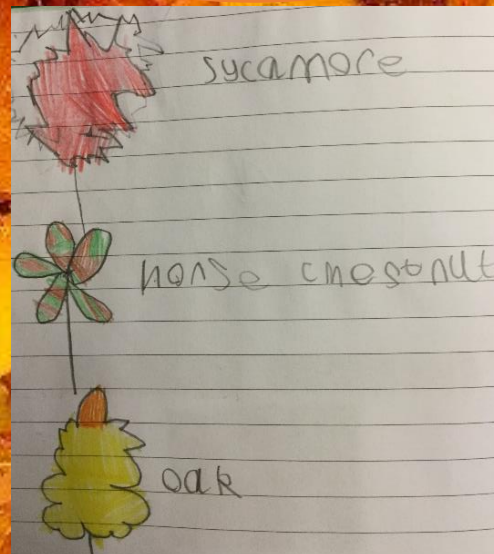 sycamore
horse chestnut
oak